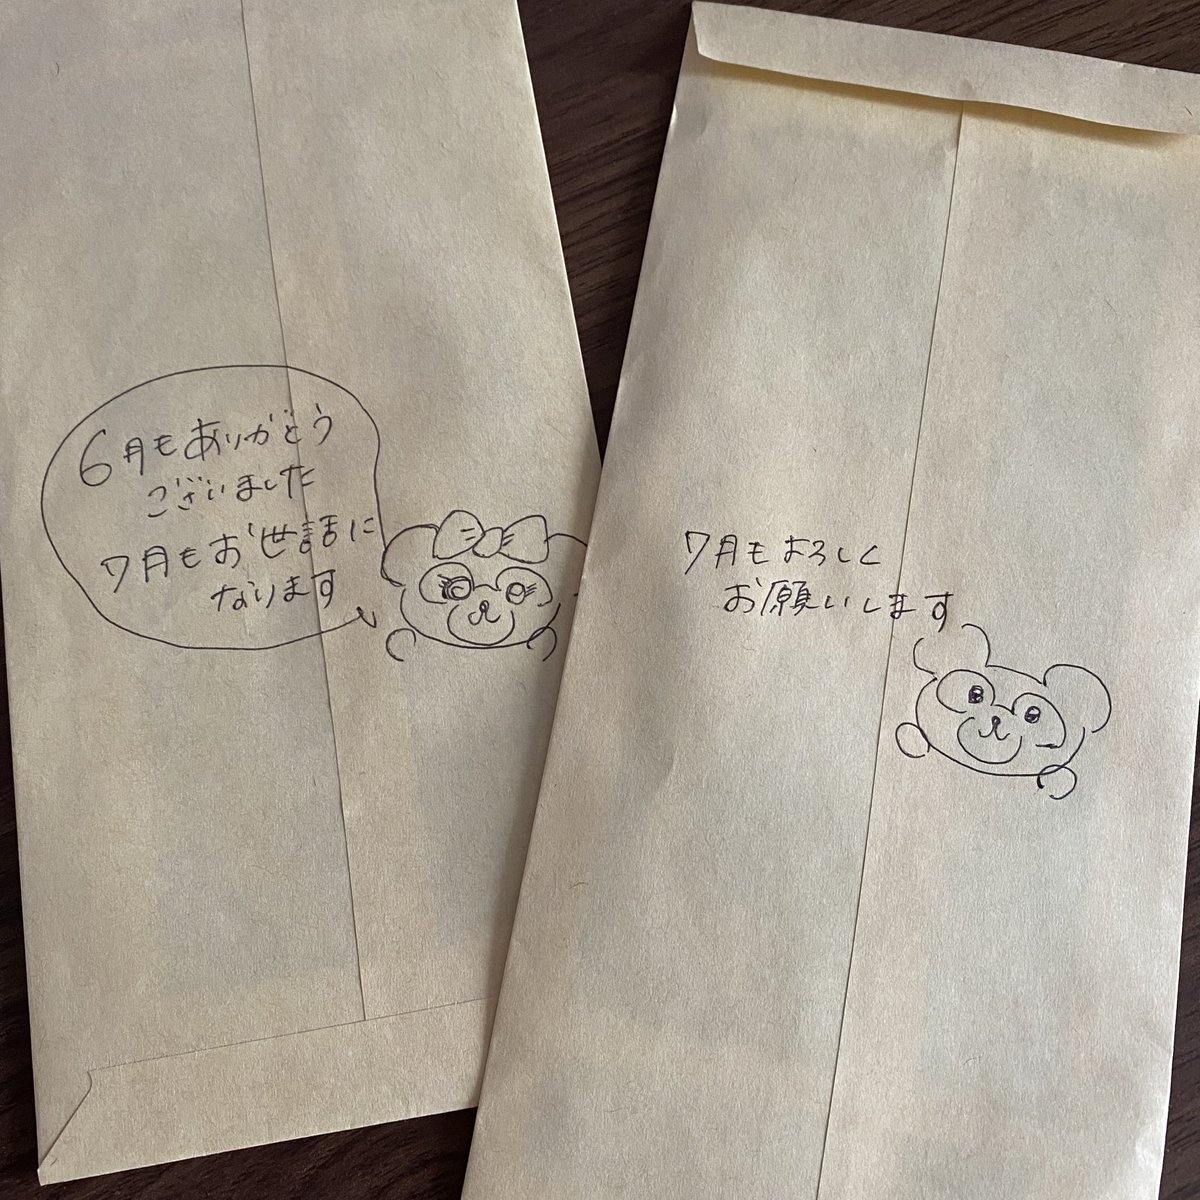 6月もありがとう
ございました
7月もお世話に
なります
7月もよろしく
お願いします